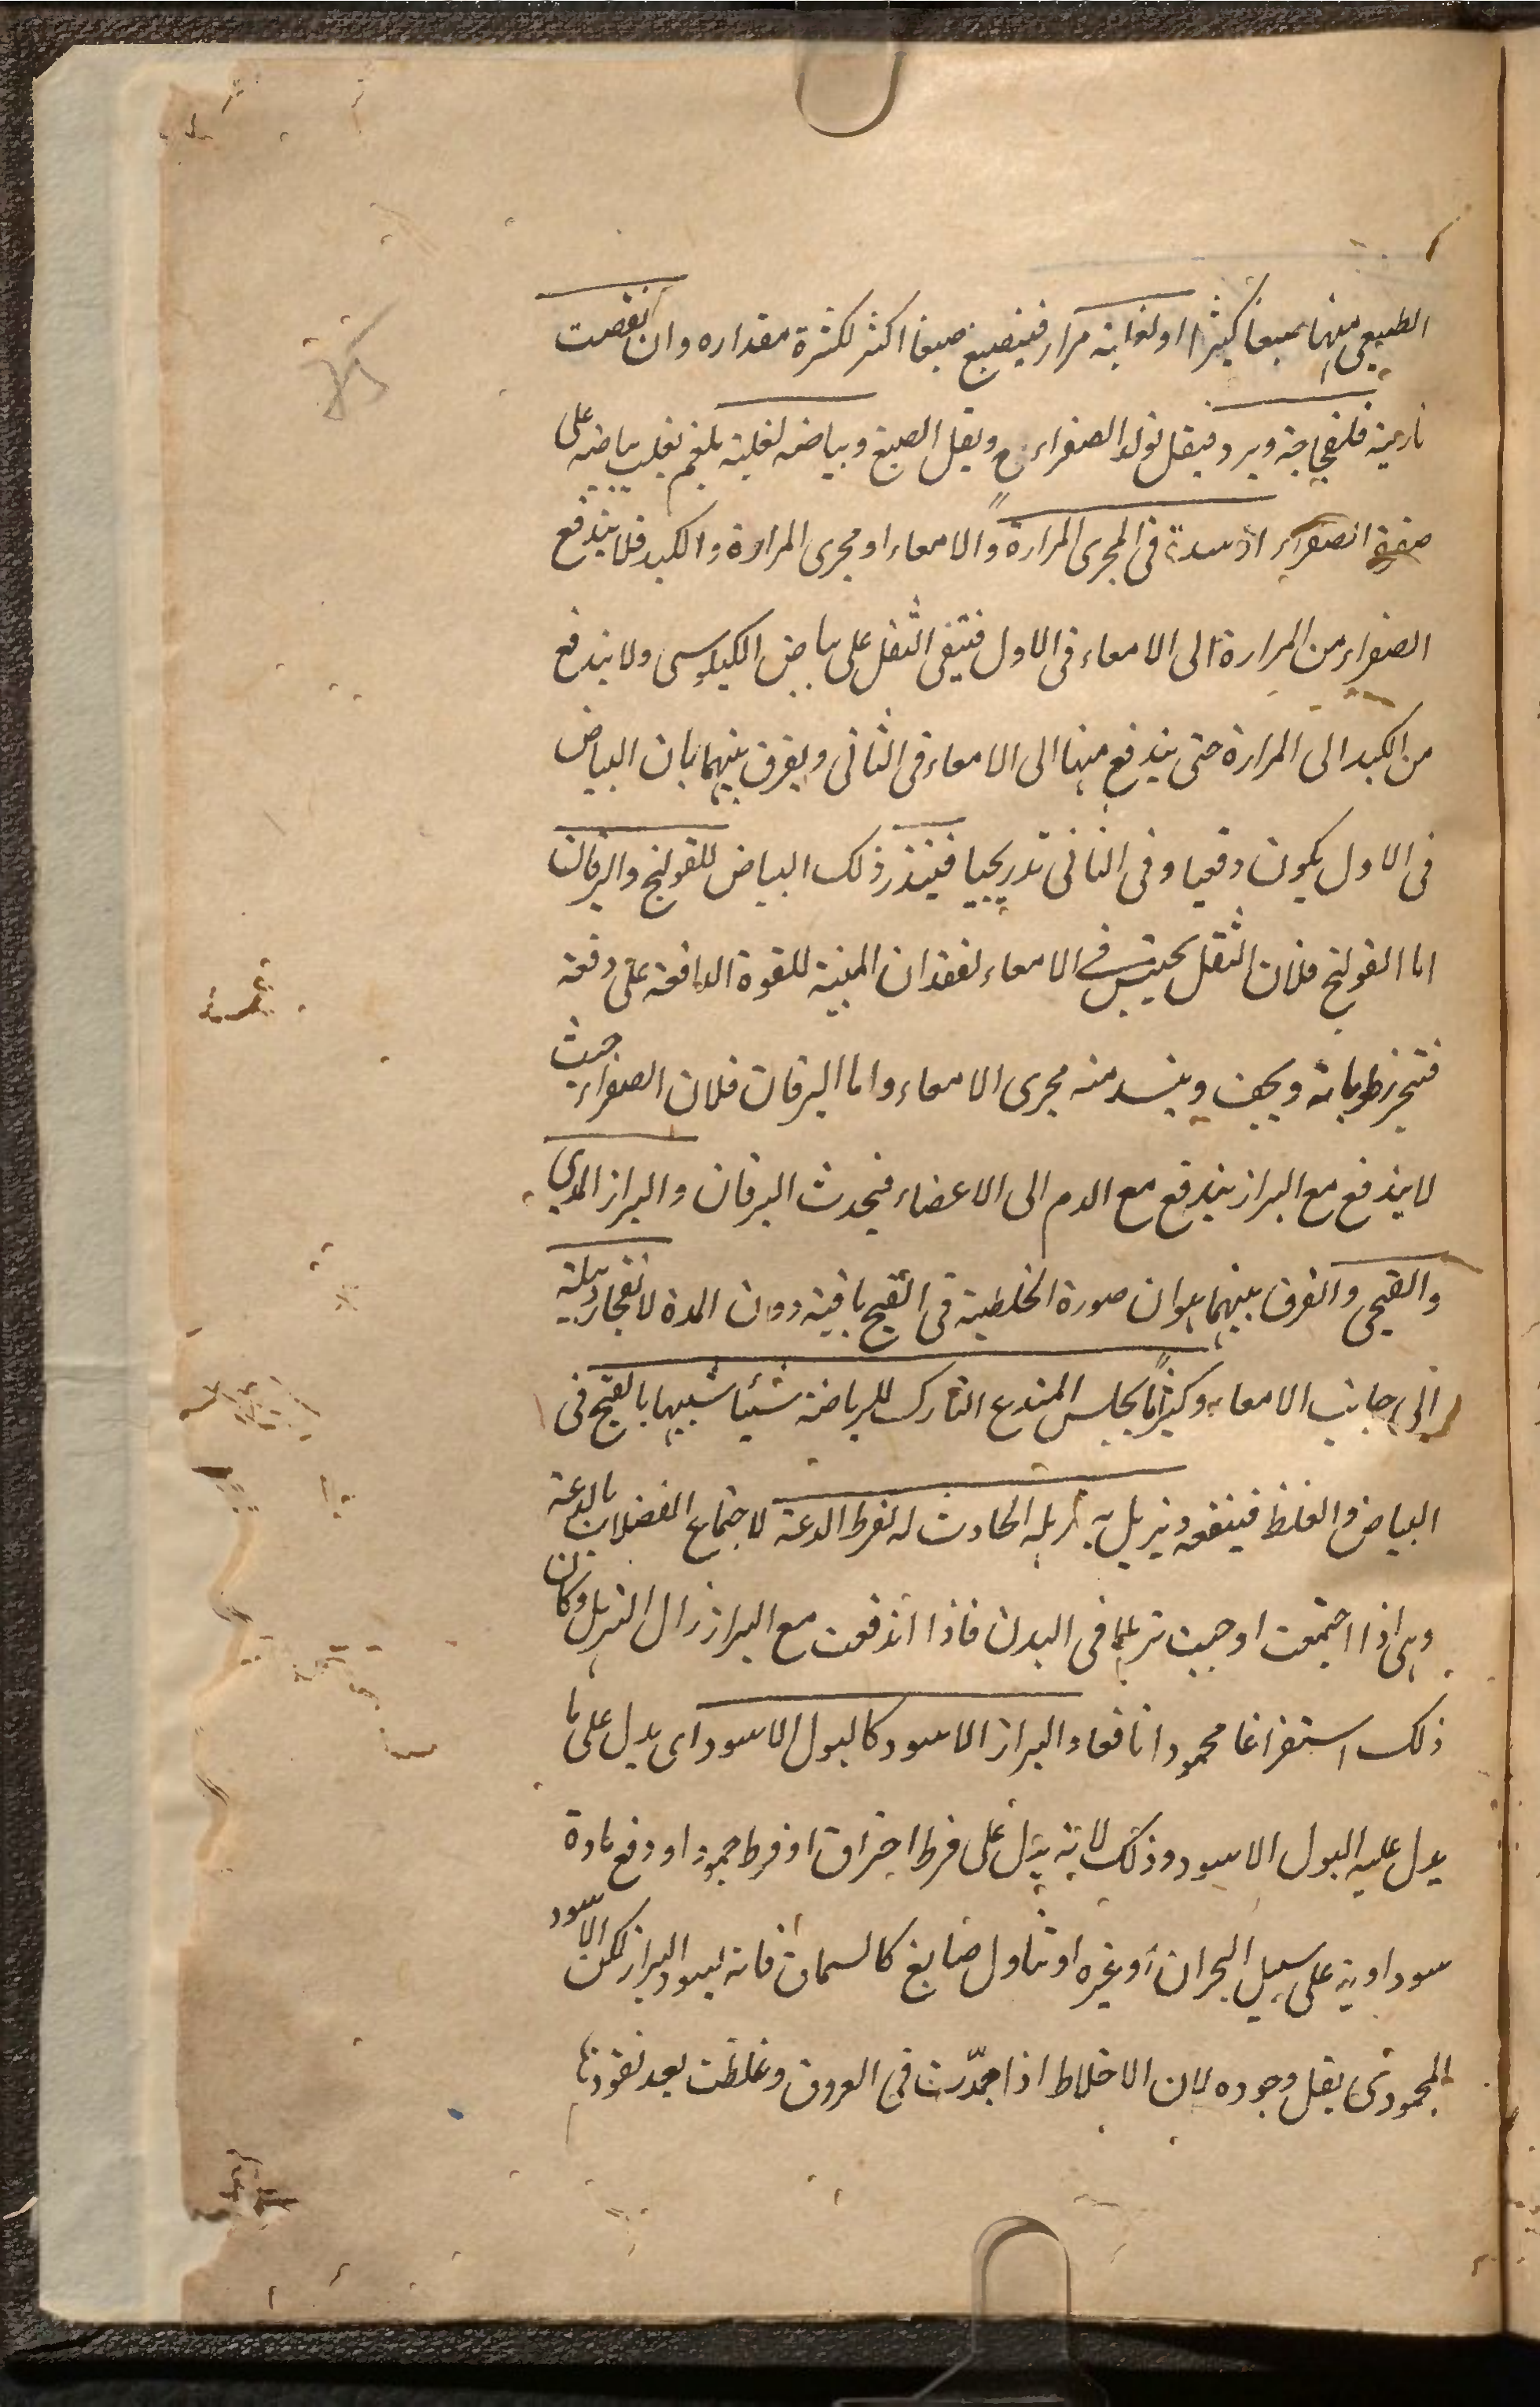 الطبيعي منهما صبغا كثيرا او لغلبة مرار فينصبغ صبغا اكثر لكثرة مقداره وان نقصت
نارية فلفجاجة وبرد فيقل تولد الصفراء ح ويقل الصبغ وبياضه لغلبة بلغم يغلب بياضه على
صفرة الصفراء او سدة فى المجرى المرارة والامعاء او مجرى المرارة والكبد فلا يندفع
الصفراء من المرارة الى الامعاء فى الاول فتبقى الثفل على بياض الكيلوسى ولا يندفع
من الكبد الى المرارة حتى يندفع منها الى الامعاء فى الثانى ويفرق بينهما بان البياض
فى الاول يكون دفعيا وفى الثانى تدريجيا فينذر ذلك البياض للقولنج واليرقان
اما القولنج فلان الثفل يحتبس فى الامعاء لفقدان المنبه للقوة الدافعة على دفعه
فتبخر رطوباته ويجف وينسد منه مجرى الامعاء واما اليرقان فلان الصفراء حيث
لا يندفع مع البراز يندفع مع الدم الى الاعضاء فيحدث اليرقان والبراز المدى
والقيحى والفرق بينهما هو ان صورة الخلطية فى القيح باقية دون المدة لانفجار دبيلة
الى جانب الامعاء وكثيرا ما يجلس المتدع التارك للرياضة شيئا شبيها بالقيح فى
البياض والغلظ فينفعه ويزيل به ترهله الحادث له لفرط الدعة لاجتماع الفضلات بالدعة
وهى اذا اجتمعت اوجبت ترهلا فى البدن فاذا اندفعت مع البراز زال الترهل وكان
ذلك استفراغا محمودا نافعا والبراز الاسود كالبول الاسود اى يدل على ما
يدل عليه البول الاسود وذلك لانه يدل على فرط احتراق او فرط جمود او دفع مادة
سوداوية على سبيل البحران او غيره او تناول صابغ كالسماق فانه يسود البراز لكن الاسود
الجمودى يقل وجوده لان الاخلاط اذا جمدت فى العروق وغلظت بعد نفوذها